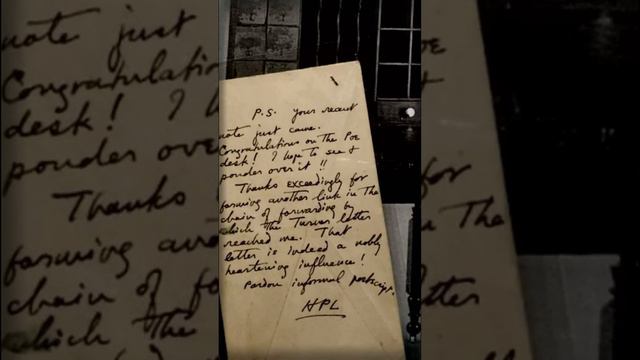 P.S. Your recent
note just came.
Congratulations on the Poe
desk! I hope to see &
ponder over it!!
Thanks exceedingly for
forming another link in the
chain of forwarding by
which the Turner letter
reached me. That
letter is indeed a nobly
heartening influence!
Pardon informal postscript.
HPL